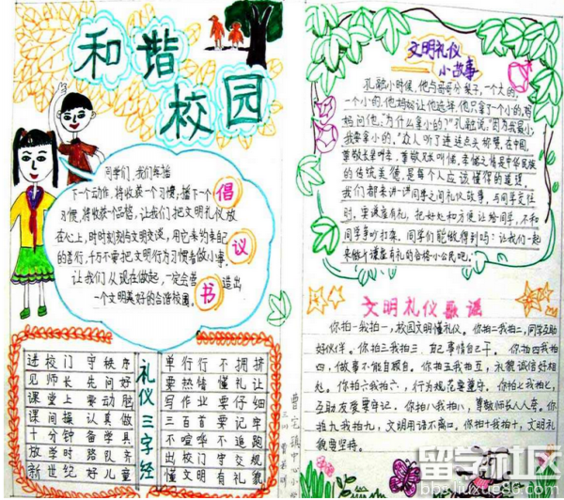 和谐
校园
同学们,我们每播
下一个动作,将收获一个习惯;播下一个
习惯,将收获一个品格,让我们把文明礼仪放
在心上,时时刻刻与文明交谈,用它来约束自己
的言行,千万不要把文明行为习惯看做小事。
让我们从现在做起,一定会营造出
一个文明美好的合谐校园。
倡
议
书
礼仪三字经
进校门 守秩序
见师长 先问好
课堂上 要动脑
课间操 认真做
十分钟 备学具
放学时 路队齐
新世纪 好儿童
单行行 不拥挤
要热情 懂礼让
写作业 要仔细
三百首 要记牢
不喧呼 不追跑
出校门 守交规
懂文明 有礼貌
文明礼仪
小故事
孔融小时候,他与哥哥分梨子,一个大的,
一个小的,他妈妈让他选择,他只拿了一个小的,妈
妈问他:为什么拿小的?"孔融说:"因为我最小,
我要拿小的。"众人听了连连点头称赞,在中国,
的传统美德,是每个人应该懂得的道理。
我们都来讲一讲同学之间礼仪故事,与同学交往
时,要谦虚有礼,把好处和方便让给同学,不和
同学争吵打架。同学们能做得到吗?让我们一起
来做个谦虚有礼的合格小公民吧。
文明礼仪歌谣
你拍一我拍一,校园文明懂礼仪。你拍二我拍二,同学互助
好伙伴。你拍三我拍三,自己事情自己干。你拍四我拍
四,做事不能自顾自。你拍五我拍五,
你拍六我拍六,行为规范要遵守。你拍七我拍七,
互助友爱要牢记。你拍八我拍八,尊敬师长人人夸。你拍
九我拍九,文明用语不离口。你拍十我拍十,文明礼
貌要坚持。
留学社区
bbs.liuxue86.com